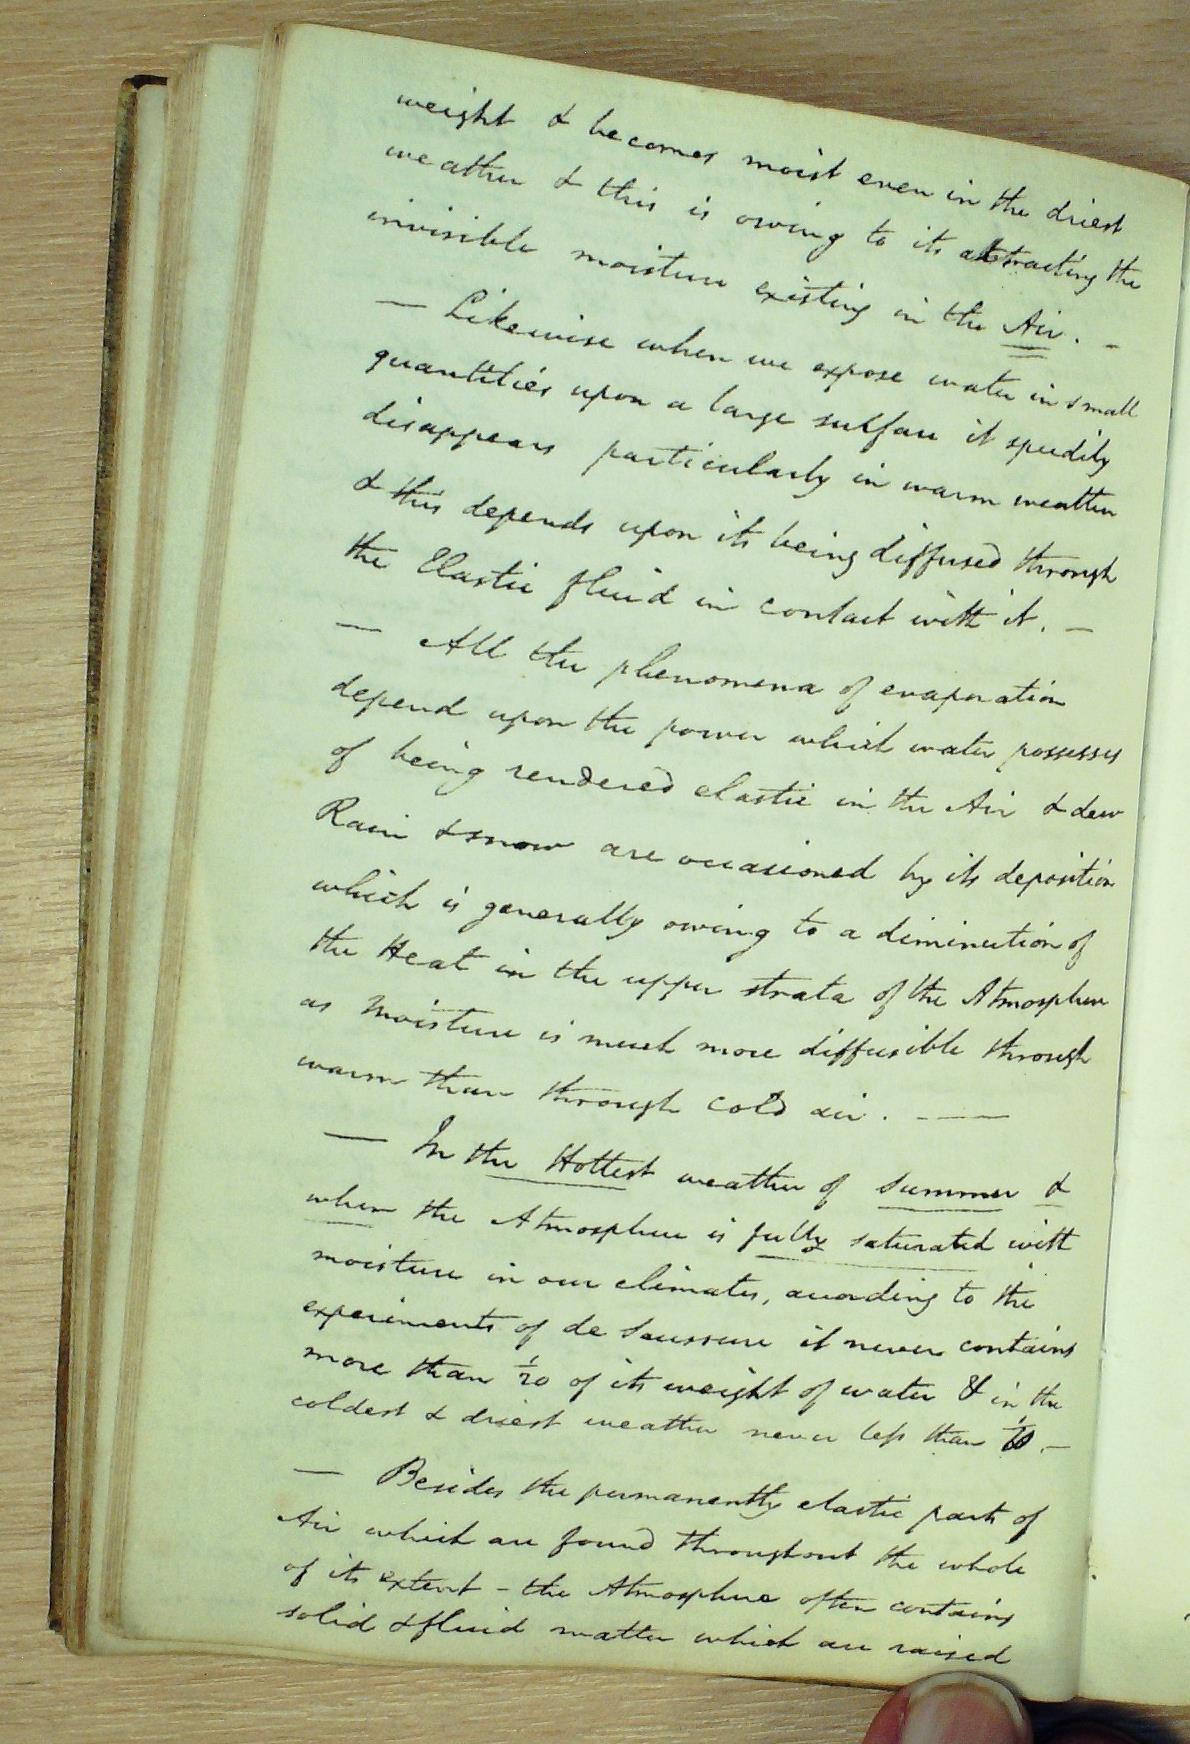 weight & becomes moist even in the driest
weather & this is owing to its attracting the
invisible moisture existing in the Air. -
— Likewise when we expose water in small
quantities upon a large surface it speedily
disappears particularly in warm weather
& this depends upon its being diffused through
the Elastic fluid in contact with it. —
— All the phenomena of evaporation
depend upon the power which water possesses
of being rendered elastic in the Air & dew
Rain & snow are occasioned by its deposition
which is generally owing to a diminution of
the Heat in the upper strata of the Atmosphere
as Moisture is much more diffusible through
warm than through cold air. —
— In the Hottest weather of Summer &
when the Atmosphere is fully saturated with
moisture in our climates, according to the
experiments of de Saussure it never contains
more than 1/20 of its weight of water & in the
coldest & driest weather never less than —
— Besides the permanently elastic parts of
Air which are found throughout the whole
of its extent - the Atmosphere often contains
solid & fluid matter which are raised